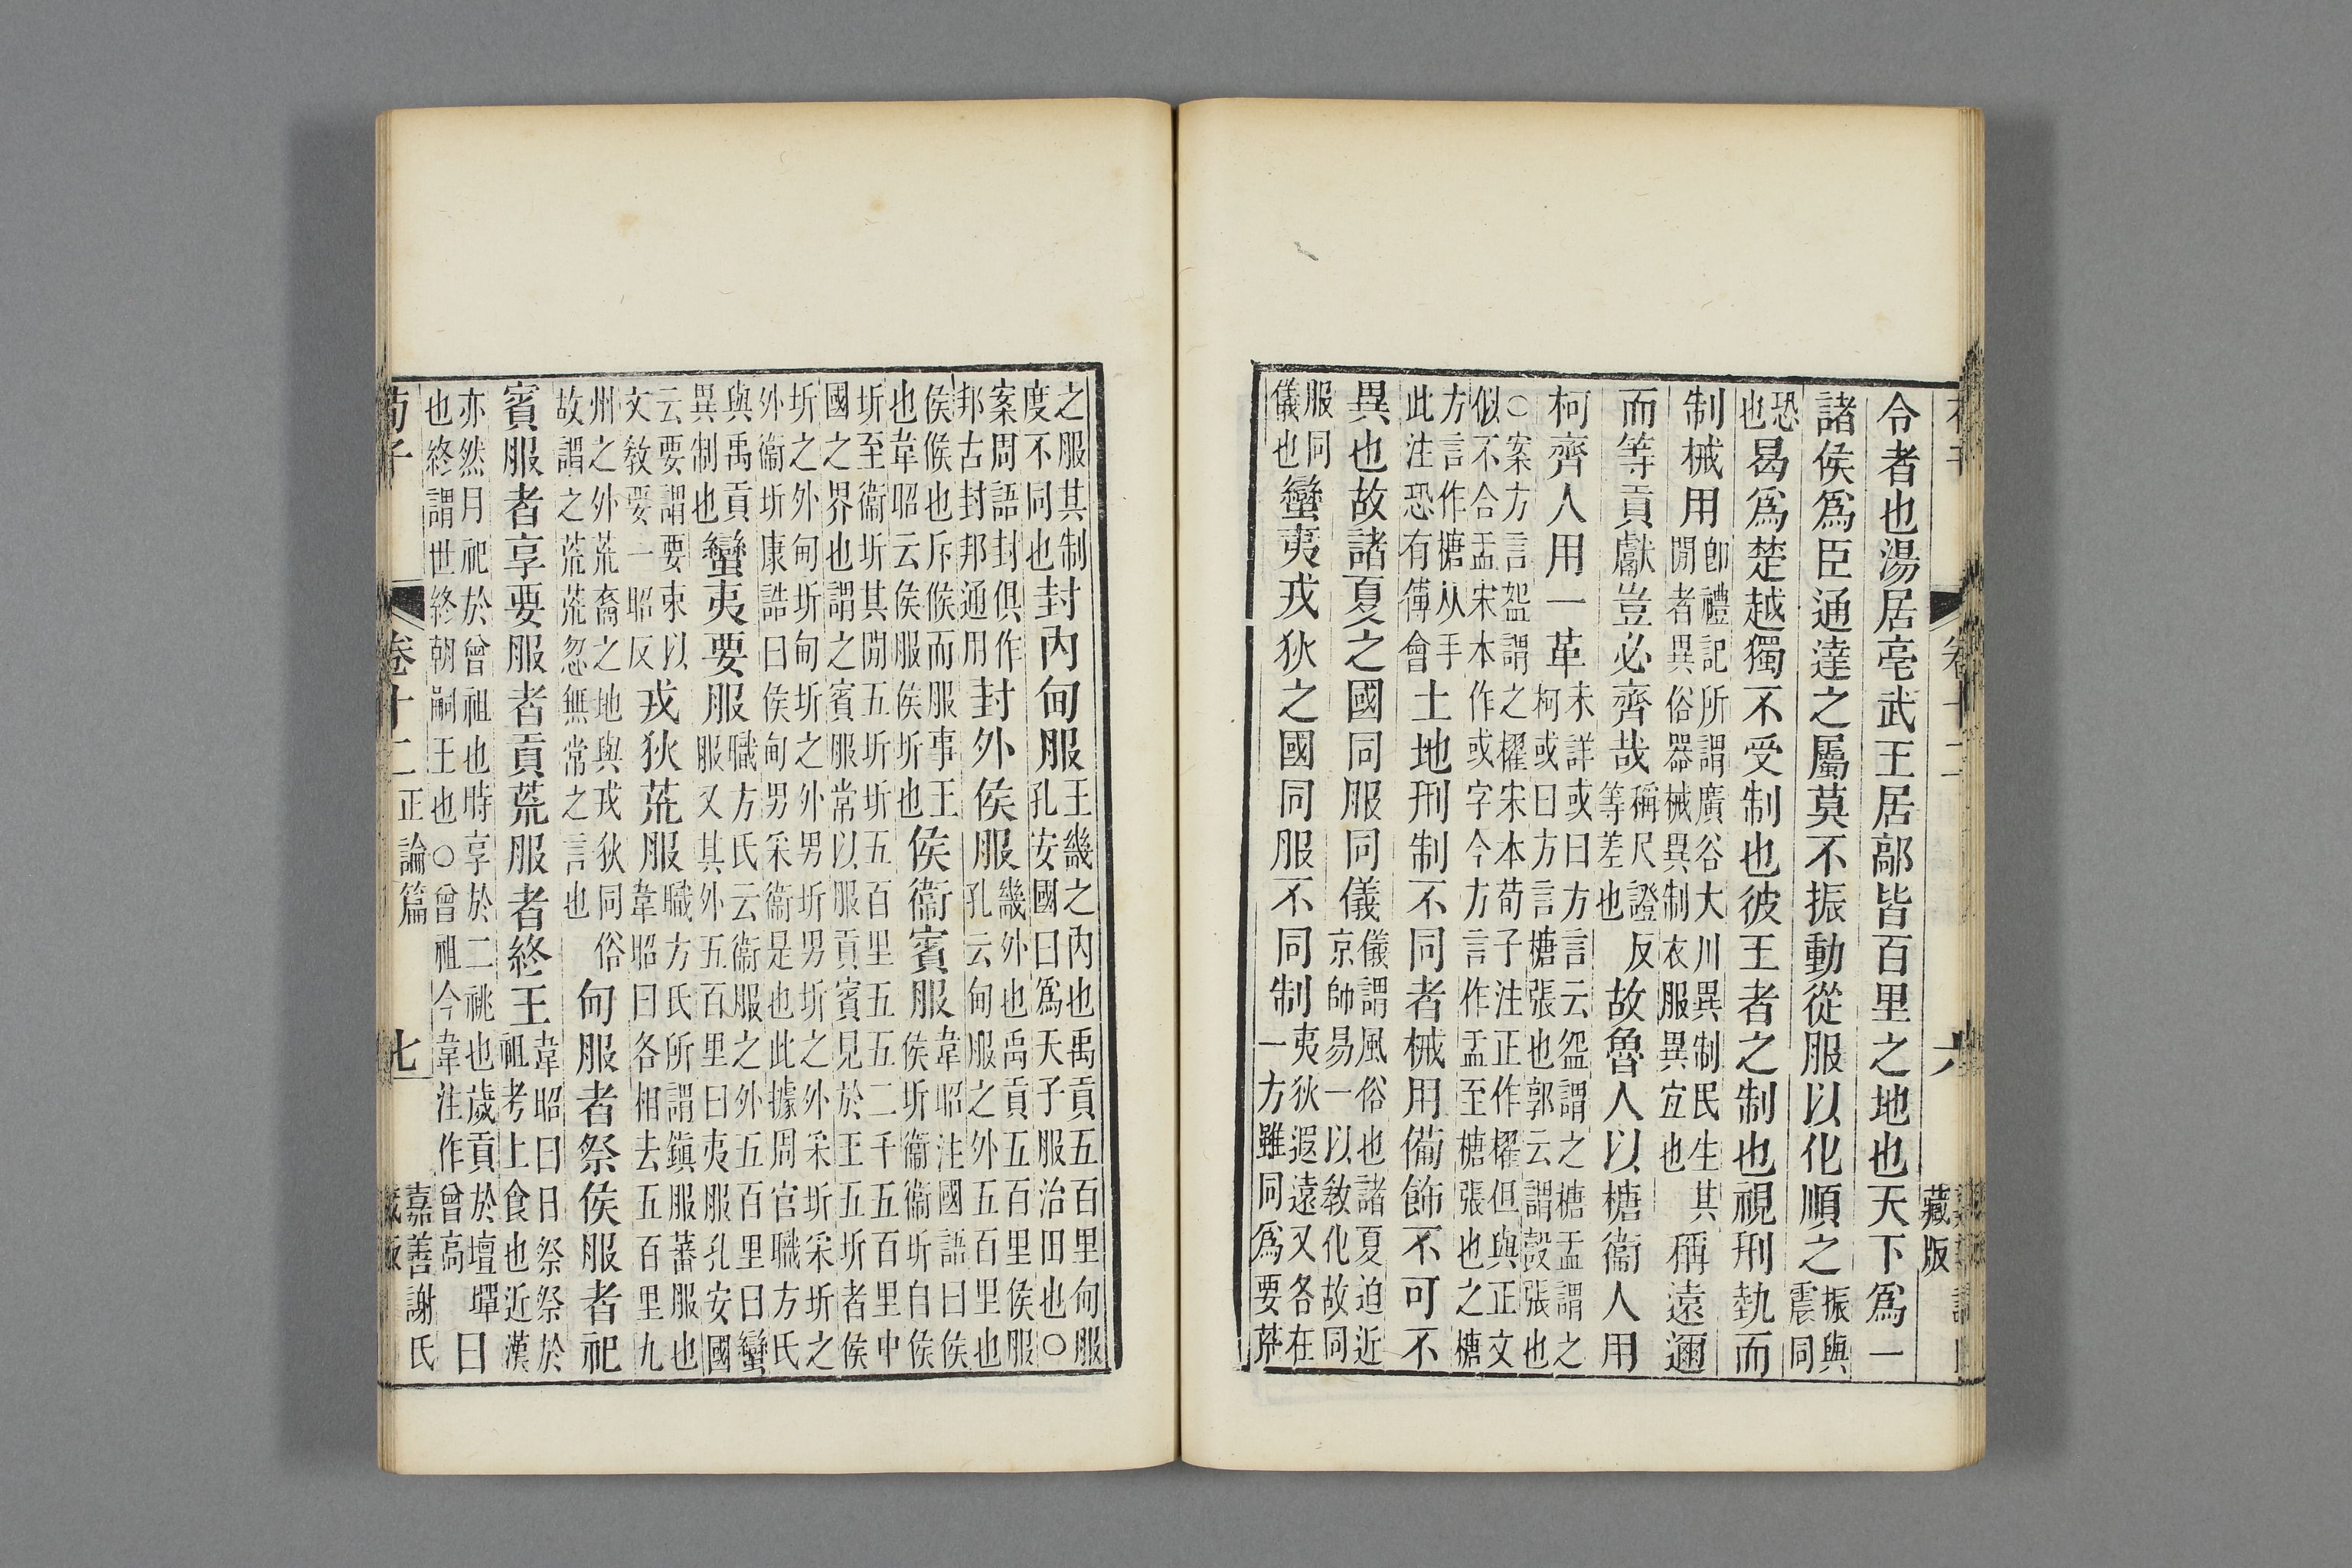 令者也湯居亳武王居鄗皆百里之地也天下爲一
諸侯爲臣通達之屬莫不振動從服以化順之振與震同
恐也曷爲楚越獨不受制也彼王者之制也視形埶而
制械用卽禮記所謂廣谷大川異制民生其閒者異俗器械異制衣服異宜也稱遠邇
而等貢獻豈必齊哉稱尺證反等差也故魯人以榶衞人用
柯齊人用一革未詳或曰方言云盌謂之榶盂謂之柯或曰方言榶張也郭云謂榖張也
○案方言盌謂之櫂宋本荀子注正作櫂但與正文似不合盂宋本作或字今方言作盂至榶張也之榶
方言作榶从手此注恐有傅會土地刑制不同者械用備飾不可不
異也故諸夏之國同服同儀儀謂風俗也諸夏迫近京師易一以敎化故同
服同儀也蠻夷戎狄之國同服不同制夷狄遐遠又各在一方雖同爲要荒
之服其制度不同也封內甸服王畿之內也禹貢五百里甸服孔安國曰爲天子服治田也○
案周語封俱作邦古封邦通用封外侯服畿外也禹貢五百里侯服孔云甸服之外五百里也
侯候也斥候而服事王也韋昭云侯服侯圻也侯衞賓服韋昭注國語曰侯侯圻衞衞圻自侯
圻至衞圻其閒五圻圻五百里五五二千五百里中國之界也謂之賓服常以服貢賓見於王五圻者侯
圻之外甸圻甸圻之外男圻男圻之外采圻采圻之外衞圻康誥曰侯甸男采衞是也此據周官職方氏
與禹貢異制也蠻夷要服職方氏云衞服之外五百里曰蠻服又其外五百里曰夷服孔安國
云要謂要束以文敎要一昭反戎狄荒服職方氏所謂鎮服蕃服也韋昭曰各相去五百里九
州之外荒裔之地與戎狄同俗故謂之荒荒忽無常之言也甸服者祭侯服者祀
賓服者享要服者貢荒服者終王韋昭曰日祭祭於祖考上食也近漢
亦然月祀於曾祖也時享於二祧也歲貢於壇墠也終謂世終朝嗣王也○曾祖今韋注作曾高日
荀子 卷十二正論篇 七 嘉善謝氏藏版